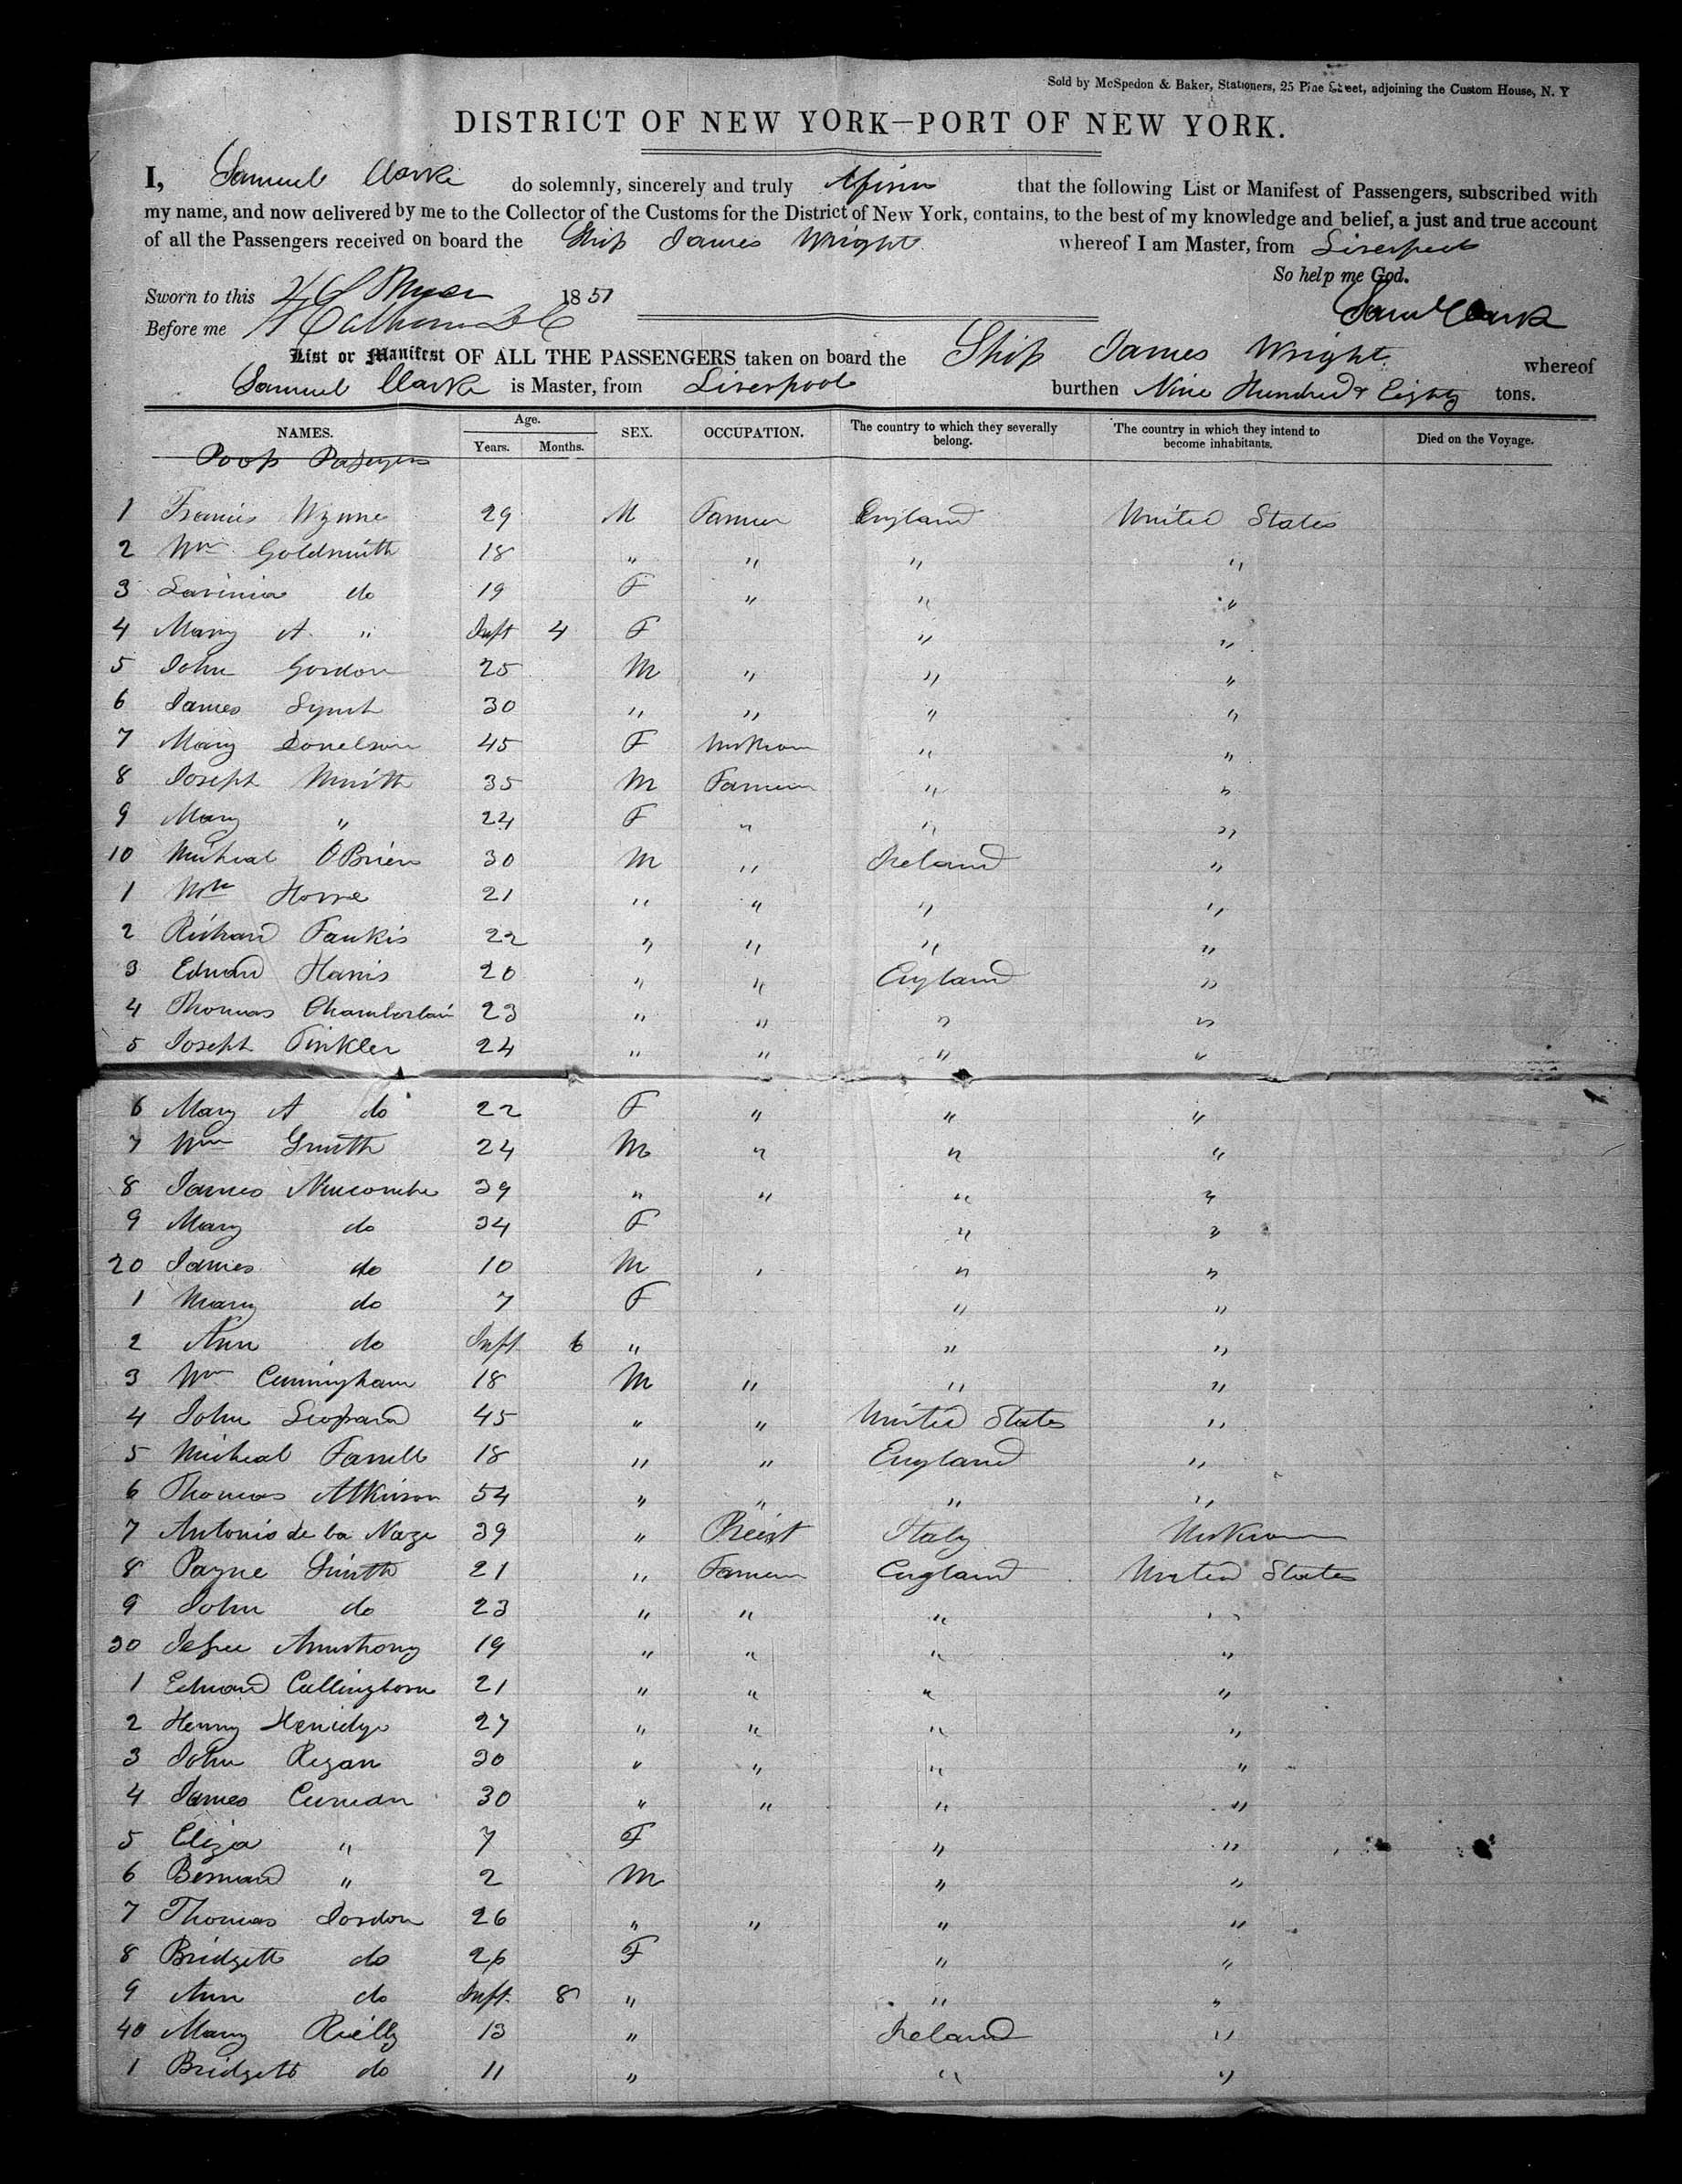 Sold by McSpedon & Baker, Stationers, 25 Pine Street, adjoining the Custom House, N. Y
DISTRICT OF NEW YORK—PORT OF NEW YORK.
I, Samuel Clarke do solemnly, sincerely and truly Affirm that the following List or Manifest of Passengers, subscribed with
my name, and now delivered by me to the Collector of the Customs for the District of New York, contains, to the best of my knowledge and belief, a just and true account
of all the Passengers received on board the Ship James Wright whereof I am Master, from Liverpool
So help me God.
Sworn to this 1851
Saml Clark
Before me
List or Manifest OF ALL THE PASSENGERS taken on board the Ship James Wright whereof
Samuel Clarke is Master, from Liverpool burthen Nine Hundred & Eighty tons.
NAMES. Age. Years. Months. SEX. OCCUPATION. The country to which they severally belong. The country in which they intend to become inhabitants. Died on the Voyage.
Poop Passengers
1 Francis Wynne 29 M Farmer England United States
2 Wm Goldsmith 18 " " " "
3 Lavinia do 19 F " " "
4 Mary A " Inft 4 F " "
5 John Gordon 25 M " " "
6 James Lynch 30 " " " "
7 Mary Donelson 45 F Unknown " "
8 Joseph 35 M Farmer " "
9 Mary " 24 F " " "
10 Micheal O'Brien 30 M " Ireland "
1 Wm Horne 21 " " " "
2 Richard 22 " " " "
3 Edward Harris 20 " " England "
4 Thomas Chamberlain 23 " " " "
5 Joseph Tinkler 24 " " " "
6 Mary A do 22 F " " "
7 Wm 24 M " " "
8 James Newcombe 39 " " " "
9 Mary do 34 F " "
20 James do 10 M " "
1 Mary do 7 F " "
2 Ann do Inft 6 " " "
3 Wm Cunningham 18 M " " "
4 John Leopard 45 " " United States "
5 Micheal Farrell 18 " " England "
6 Thomas Atkinson 54 " " " "
7 Antonio de la 39 " Preist Italy Unknown
8 Payne Smith 21 " Farmer England United States
9 John do 23 " " " "
30 Armstrong 19 " " " "
1 Edward Cullingborn 21 " " " "
2 Henry 27 " " " "
3 John Regan 30 " " " "
4 James Curnan 30 " " " "
5 Eliza " 7 F " "
6 Bernard " 2 M " "
7 Thomas Jordon 26 " " " "
8 Bridgett do 26 F " "
9 Ann do Inft. 8 " " "
40 Mary Rielly 13 " Ireland "
1 Bridgett do 11 " " "